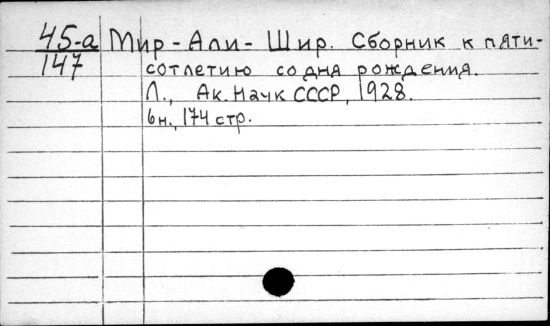 45-а Мир-Али-Шир. Сборник к пяти-
147 сотлетию со дня рождения.
Л., Ак. Наук СССР, 1928.
6н., 174 стр.